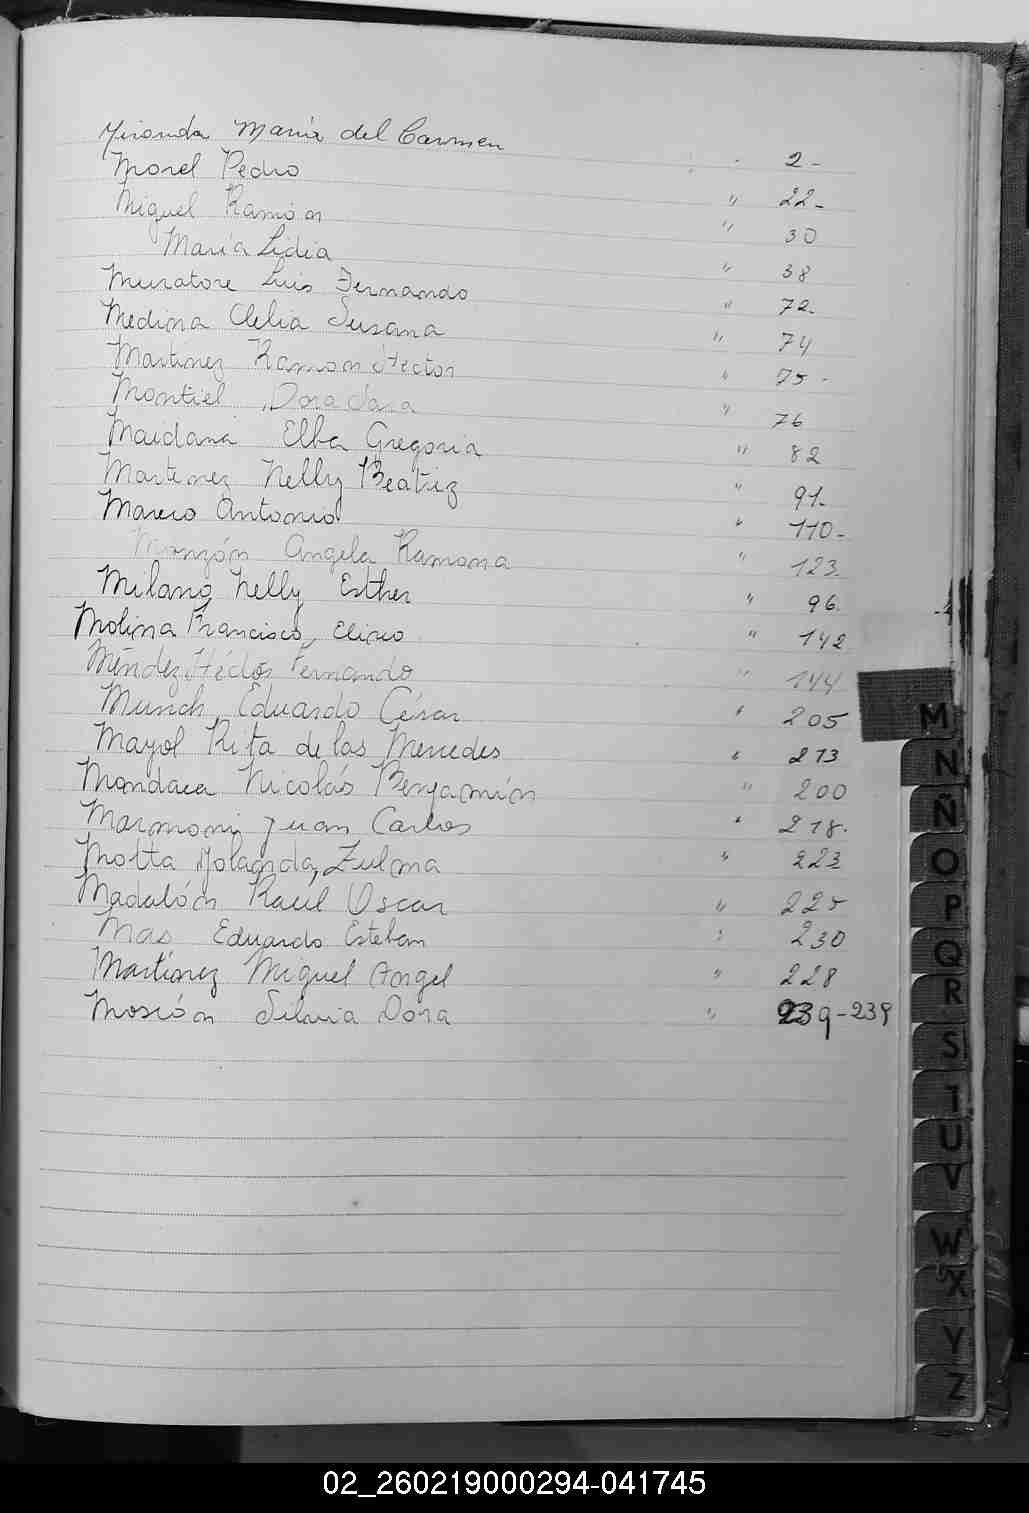 Miranda María del Carmen " 2-
Morel Pedro " 22-
Miguel Ramón " 30
María Lidia " 38
Muratore Luis Fernando " 72-
Medina Clelia Susana " 74
Martínez Ramón Héctor " 75-
Montiel, Dora Sara " 76
Maidana Elba Gregoria " 82
Martinez Nelly Beatriz " 91-
Antonio " 110-
Monzón Angela Ramona " 123
Milano Nelly Esther " 96
Molina Francisco, Eliseo " 142
Méndez, Héctor Fernando " 144
Munch, Eduardo César " 205
Mayol Rita de las Mercedes " 213
Mondaca Nicolás Benjamín " 200
Marmoni, Juan Carlos " 218-
Motta Yolanda, Zulma " 223
Madalón Raúl Oscar " 225
Mas Eduardo Esteban " 230
Martínez Miguel Angel " 228
Silvia Dora " 239-239
M
N
Ñ
O
P
Q
R
S
T
U
V
W
X
Y
Z
02_260219000294-041745